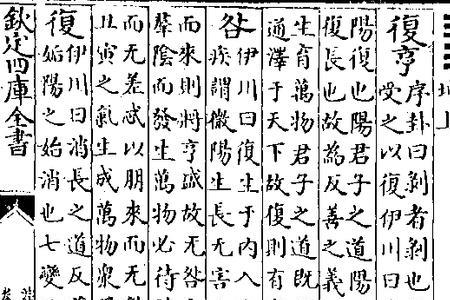 坤上
復亨序卦曰剝者剝也
受之以復伊川曰
陽復也陽君子之道陽
復長也故為反善之義
生育萬物君子之道既
通澤于天下故復則有
咎伊川曰復生于內入
疾謂微陽生長无害
而來則將亨盛故无咎
羣陰而發生萬物必待
而无差忒以朋來而无
丑寅之氣生成萬物衆
復伊川曰消長之道反
姤陽之始消也七變
欽定四庫全書